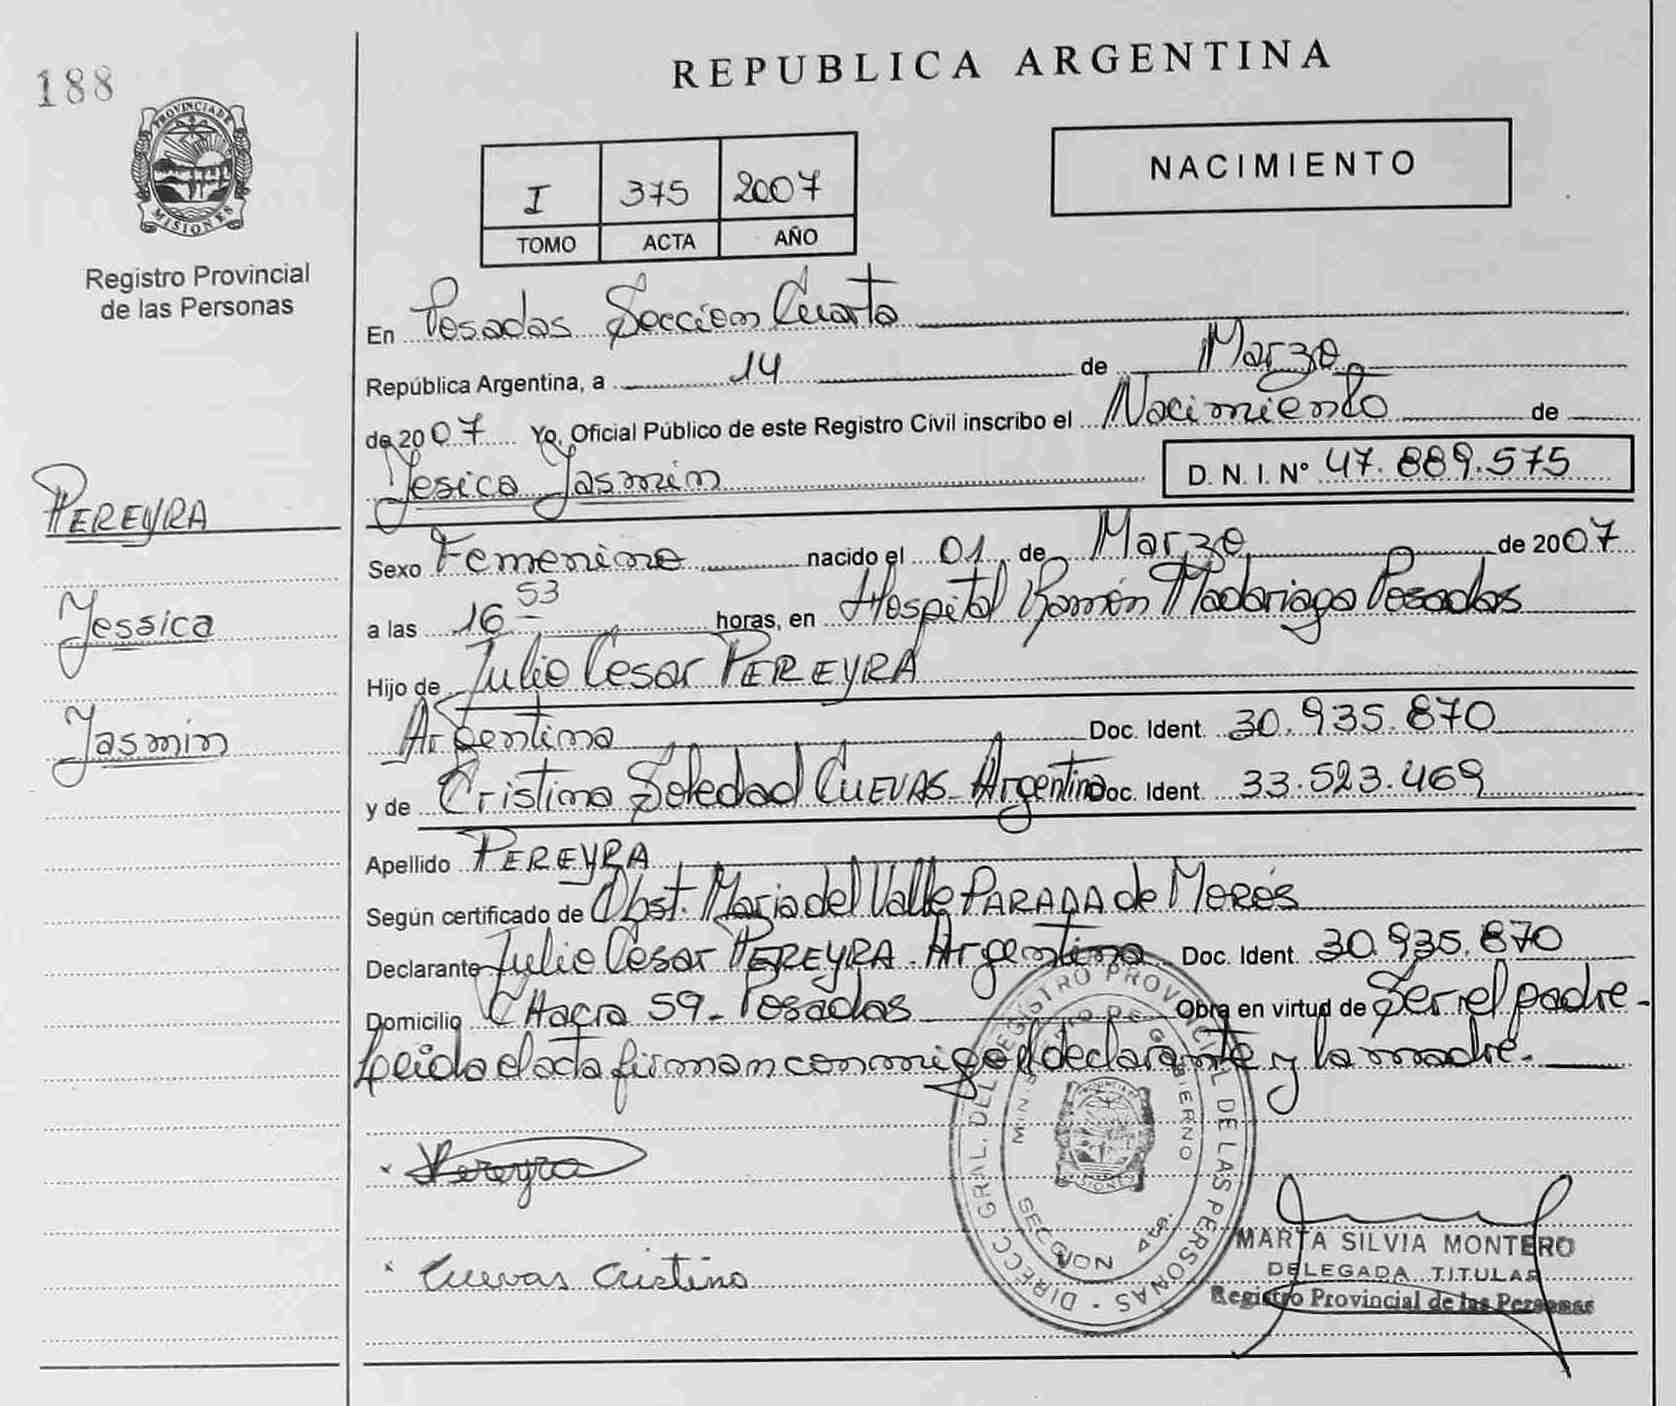 188
REPUBLICA ARGENTINA
PROVINCIA DE
MISIONES
Registro Provincial
de las Personas
I 375 2007
TOMO ACTA AÑO
NACIMIENTO
En Posadas Seccion Cuarta
República Argentina, a 14 de Marzo
de 2007 Yo, Oficial Público de este Registro Civil inscribo el Nacimiento de
Yesica Yasmin D. N. I. N° 47.889.575
PEREYRA
Yessica
Yasmin
Sexo Femenino nacido el 01 de Marzo de 2007
a las 16 53 horas, en Hospital Ramón Madariaga Posadas
Hijo de Julio Cesar PEREYRA
Argentino Doc. Ident. 30.935.870
y de Cristina Soledad CUEVAS - Argentina Doc. Ident. 33.523.469
Apellido PEREYRA
Según certificado de Obst. Maria del Valle PARADA de Morés
Declarante Julio Cesar PEREYRA - Argentino Doc. Ident. 30.935.870
Domicilio CHacra 59 - Posadas Obra en virtud de Ser el padre -
Leida el acta firman conmigo el declarante y la madre.
Pereyra
Cuevas Cristina
DIRECC. GRAL. DEL REGISTRO PROVINCIAL DE LAS PERSONAS
MINISTERIO DE GOBIERNO
SECCION 4ta.
MARTA SILVIA MONTERO
DELEGADA TITULAR
Registro Provincial de las Personas